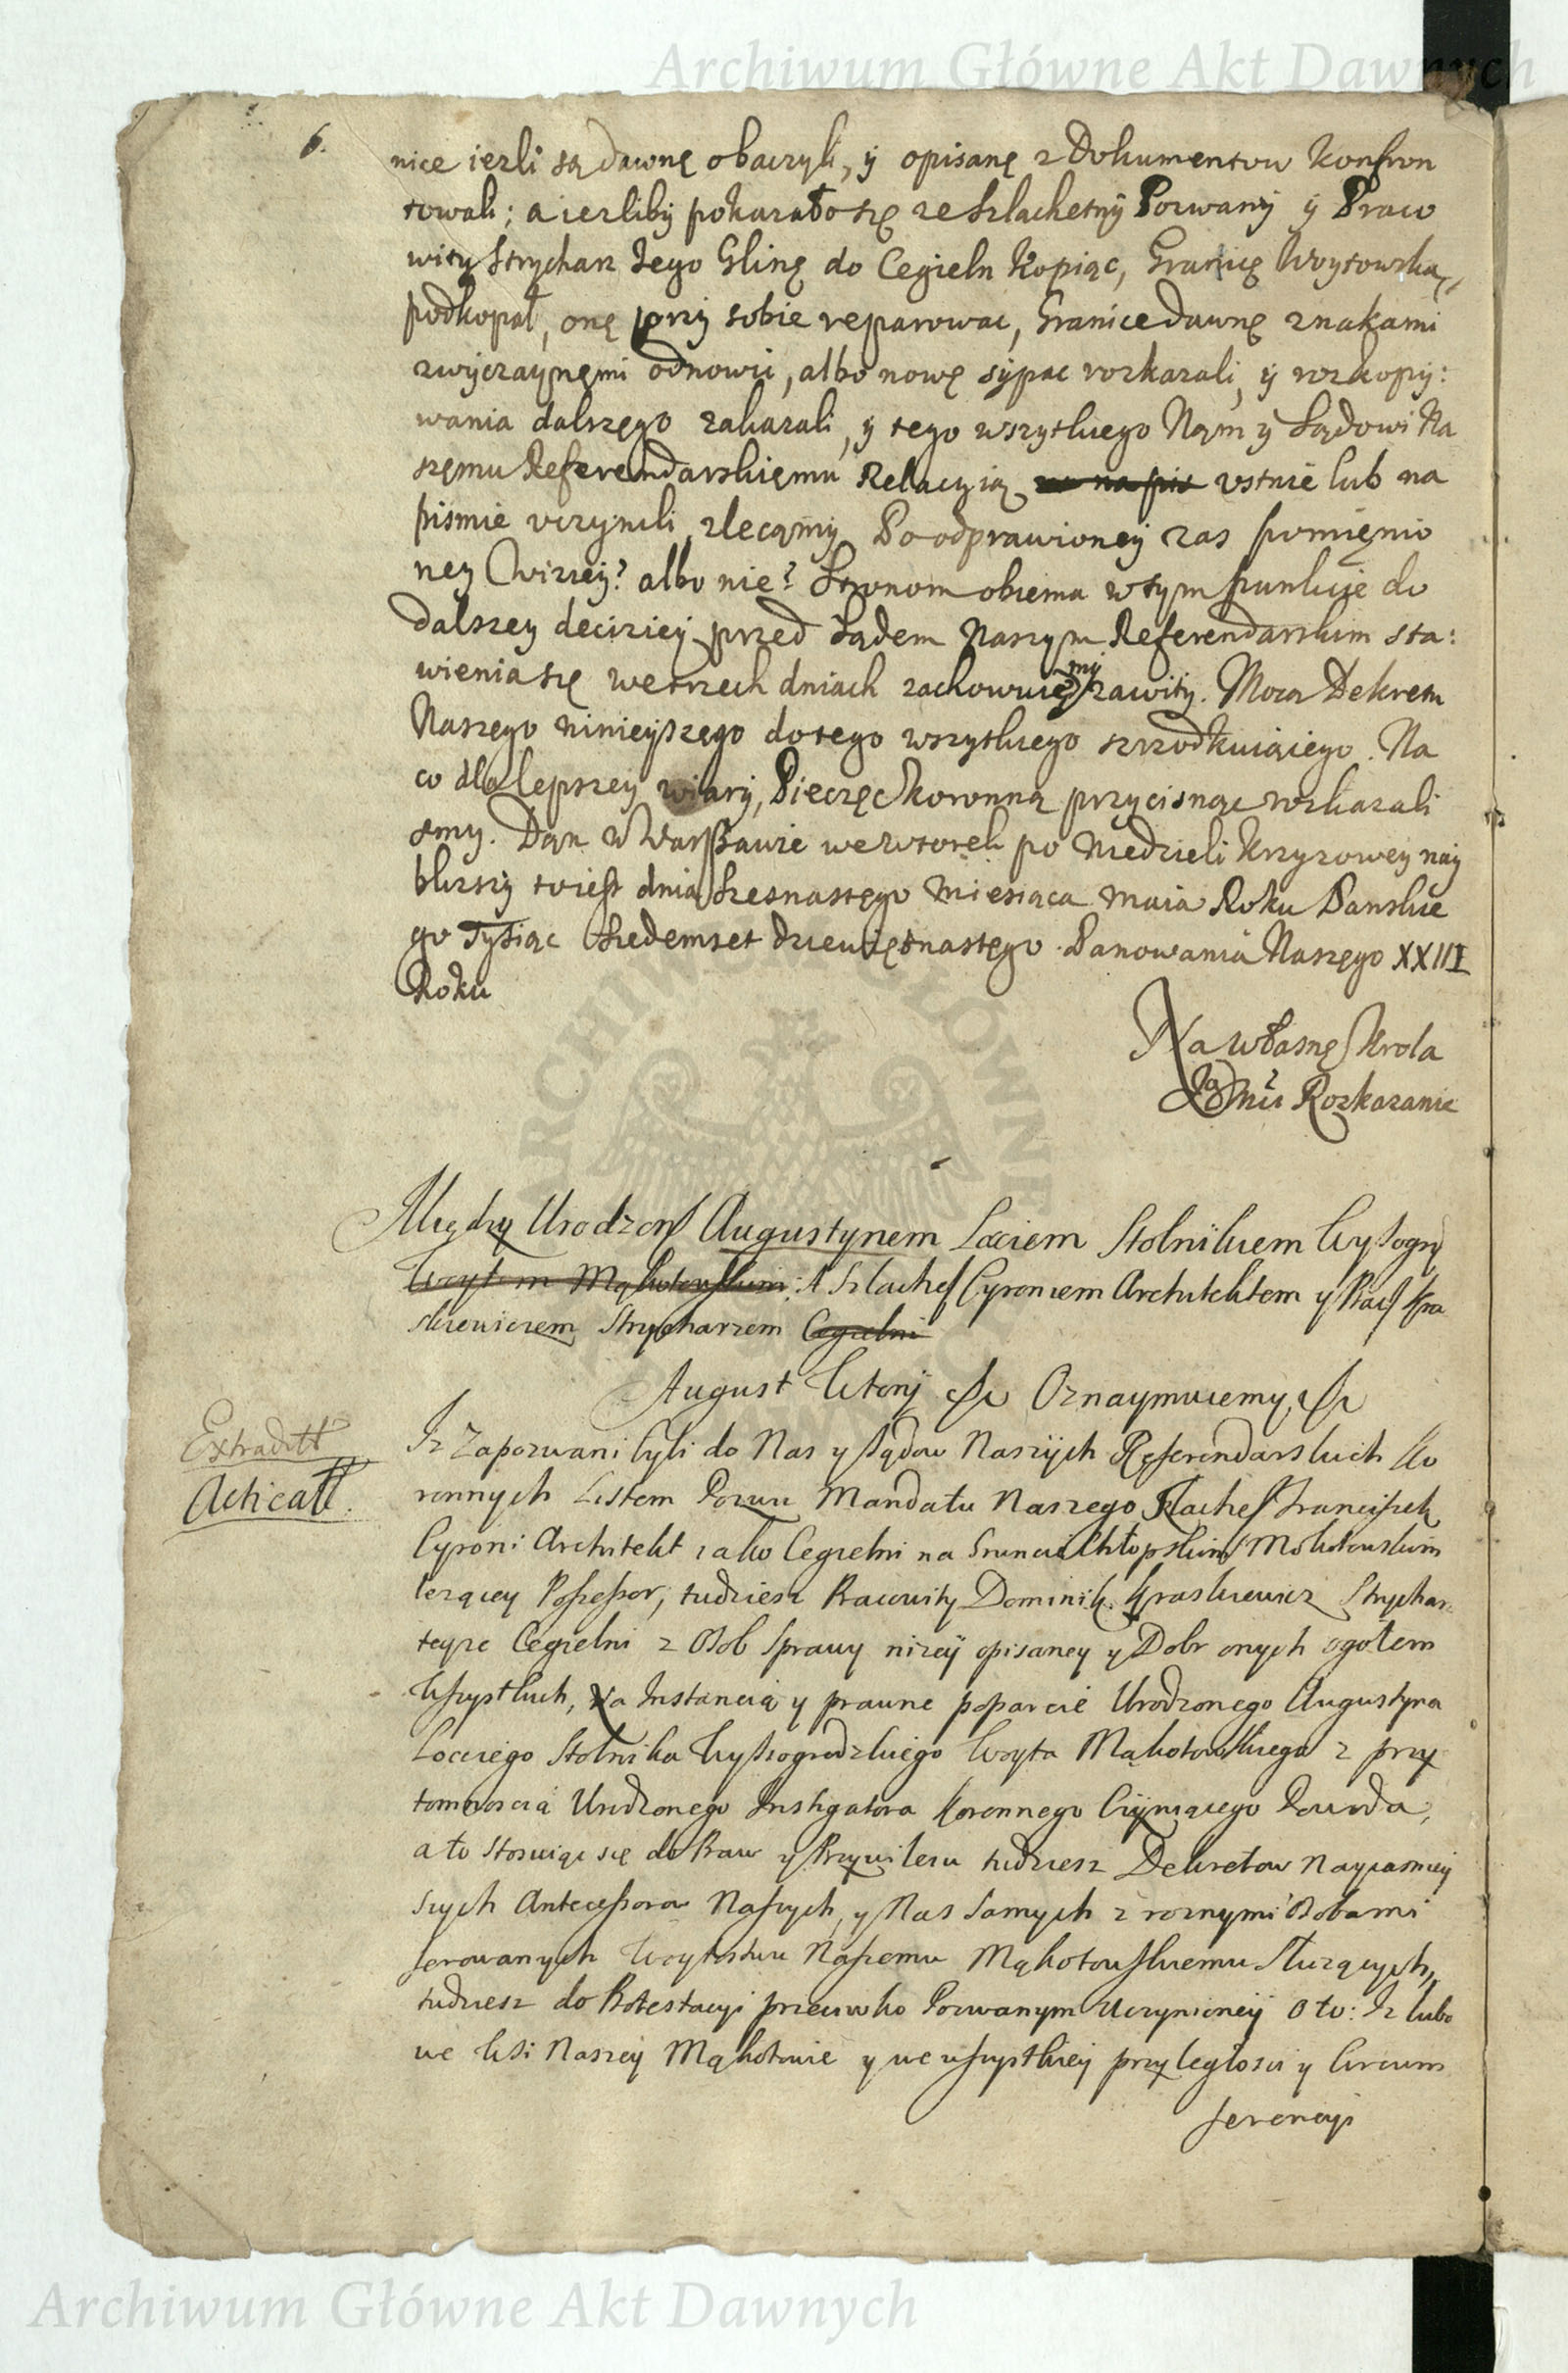 Archiwum Główne Akt Dawnych
6.
nice iezli są dawnę obaczyli, ÿ opisanę z Dokumentow konfron
towali; a iezliby pokazało się ze Szlachetnÿ Pozwanÿ ÿ Praco
wity Strycharz Jego Glinę do Cegieln Kopiąc, Granicę Woytowską
podkopał, onę przÿ sobie reparowac, Granice dawnę znakami
zwÿczaÿnęmi odnowic, albo nowę sÿpac rozkazali, ÿ rozkopÿ:
wania dalszęgo zakazali, ÿ tego wszytkiego Nąm ÿ Sądowi Na
szęmu Referendarskięmu Relacyią na pis ustnie lub na
pismie uczynili zlecąmÿ. Po odprawioneÿ zas pomięnio
ney Wizieÿ? albo nie? Stronom obiema w tym punkcie do
dalszey decizieÿ przed Sądem Naszym Referendarskim sta:
wienia się we trzech dniach zachowuię my zawity. Moca Dekretu
Naszego ninieÿszęgo do tego wszytkiego szrzodkuiąiego. Na
co dla lepszeÿ wiarÿ, Pieczęc Koronną przycisnąc rozkazali
smy. Dąn w Warszawie we Wtorek po Niedzieli Krzyzowey naÿ
blizszÿ to iest dnia Szesnastęgo Miesiąca Maia Roku Panskie
go Tysiąc Siedemset dziewiętnastęgo. Panowania Naszęgo XXIII
Roku
Na własnę Krola
Jo Mci Rozkazanie
Między Urodzon Augustynem Lociem Stolnikiem Wyszogr
Woytem Mąkotowskim: A Szlachet Cyroniem Architektem y Prac Kra
skiewiczem Strycharzem Cegielni
August Wtorÿ &c Oznaymuiemy, &c
Extraditt
Acticatt.
Iz Zapozwani byli do Nas y sądow Naszÿch Referendarskich Ko
ronnych Listem Pozwu Mandatu Naszego Szlachet Franciszek
Cyroni Architekt iako Cegielni na Gruncie Chłopskim Mokotowskim
lezącey Possessor, tudziesz Pracowity Dominik Kraskiewicz Strycharz
teyze Cegielni z Osob Sprawy nizeÿ opisaney y Dobr onych ogołem
wszystkich, Na Instancią y prawne poparcie Urodzonego Augustyna
Lociego Stolnika Wyszogrodzkiego Woyta Mąkotowskiego z przy
tomnoscią Urodzonego Instigatora Koronnego Czÿniącego Powoda,
a to Stosuiąc się do Praw y Przywileiu tudziesz Dekretow Nayiasniey
szych Antecessorow Naszych, y Nas Samych z roznymi Osobami
ferowanych Woytostwu Naszemu Mąkotowskiemu Służących,
tudziesz do Protestacyi przeciwko Pozwanym Uczynioneÿ O to: Iz lubo
we Wsi Naszey Mąkotowie y we wszystkieÿ przyległosci y Circum
ferencyi
Archiwum Główne Akt Dawnych